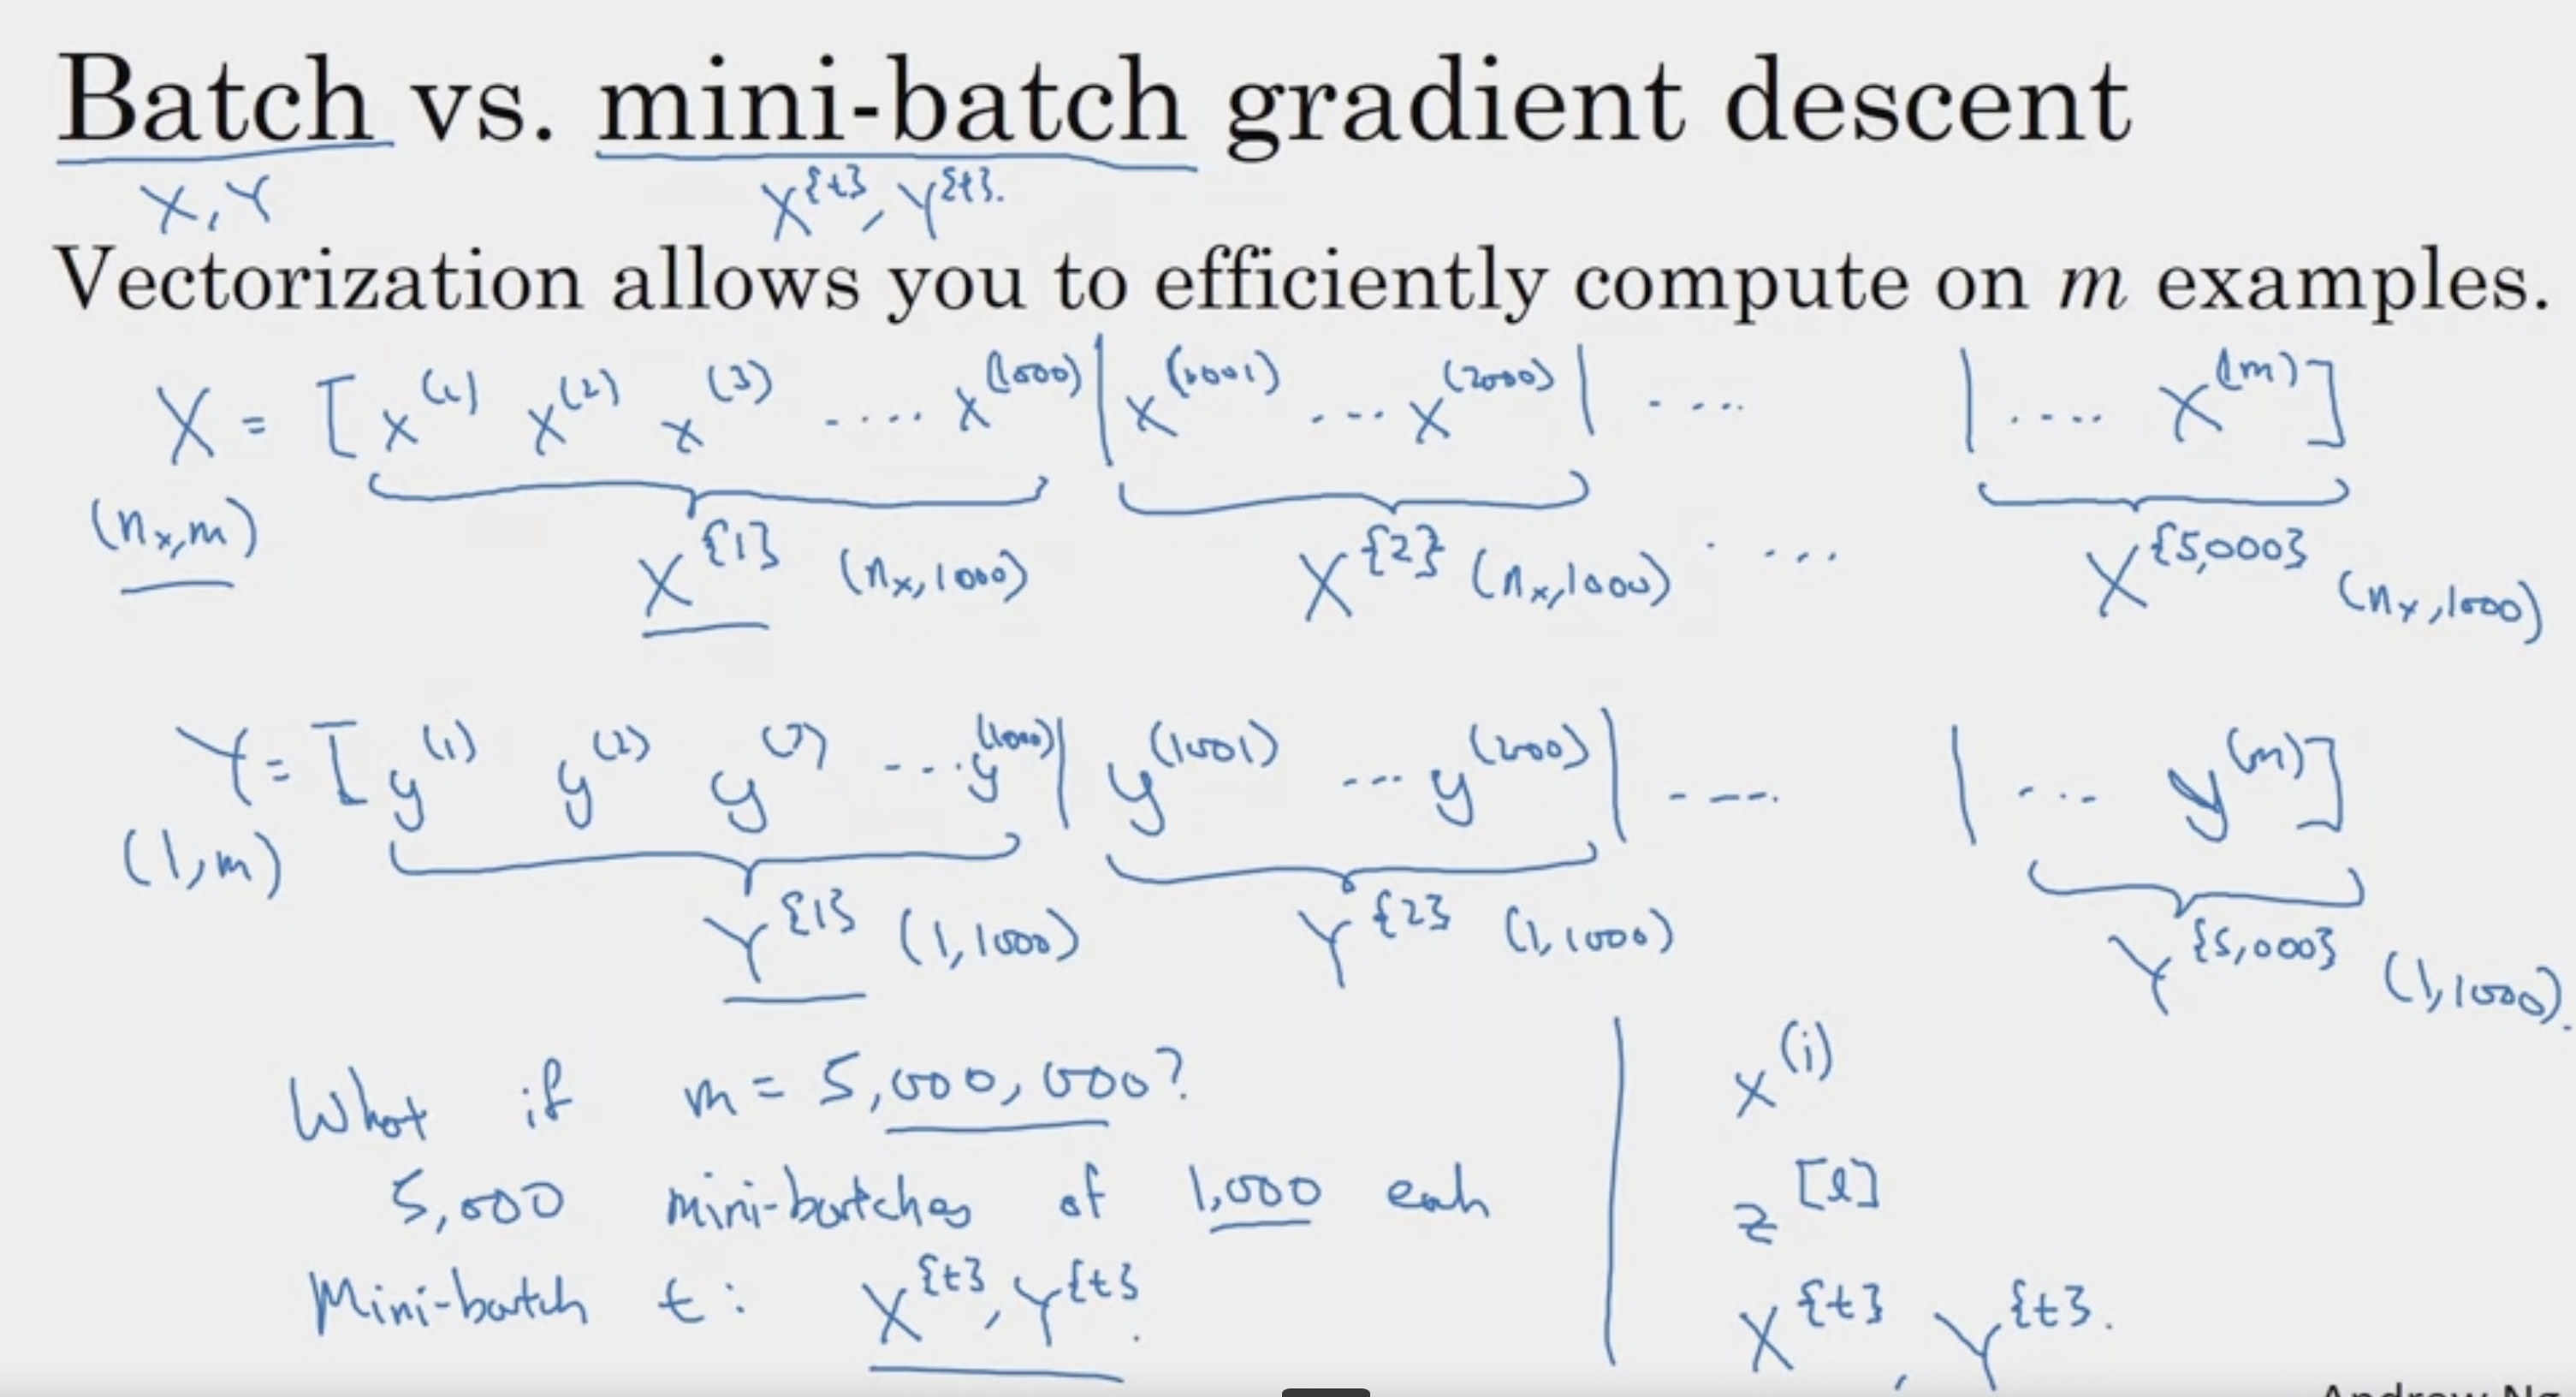 Batch vs. mini-batch gradient descent
X, Y X^{t}, Y^{t}.
Vectorization allows you to efficiently compute on m examples.
X = [x^(1) x^(2) x^(3) ..... x^(1000) | x^(1001) ... x^(2000) | ..... | .... x^(m)]
(n_x, m) X^{1} (n_x, 1000) X^{2} (n_x, 1000) .... X^{5,000} (n_x, 1000)
Y = [y^(1) y^(2) y^(3) ... y^(1000) | y^(1001) ... y^(2000) | ---. | ... y^(m)]
(1, m) Y^{1} (1, 1000) Y^{2} (1, 1000) Y^{5,000} (1, 1000).
What if m = 5,000,000?
5,000 mini-batches of 1,000 each
Mini-batch t: X^{t}, Y^{t}.
x^(i)
z^[l]
X^{t}, Y^{t}.